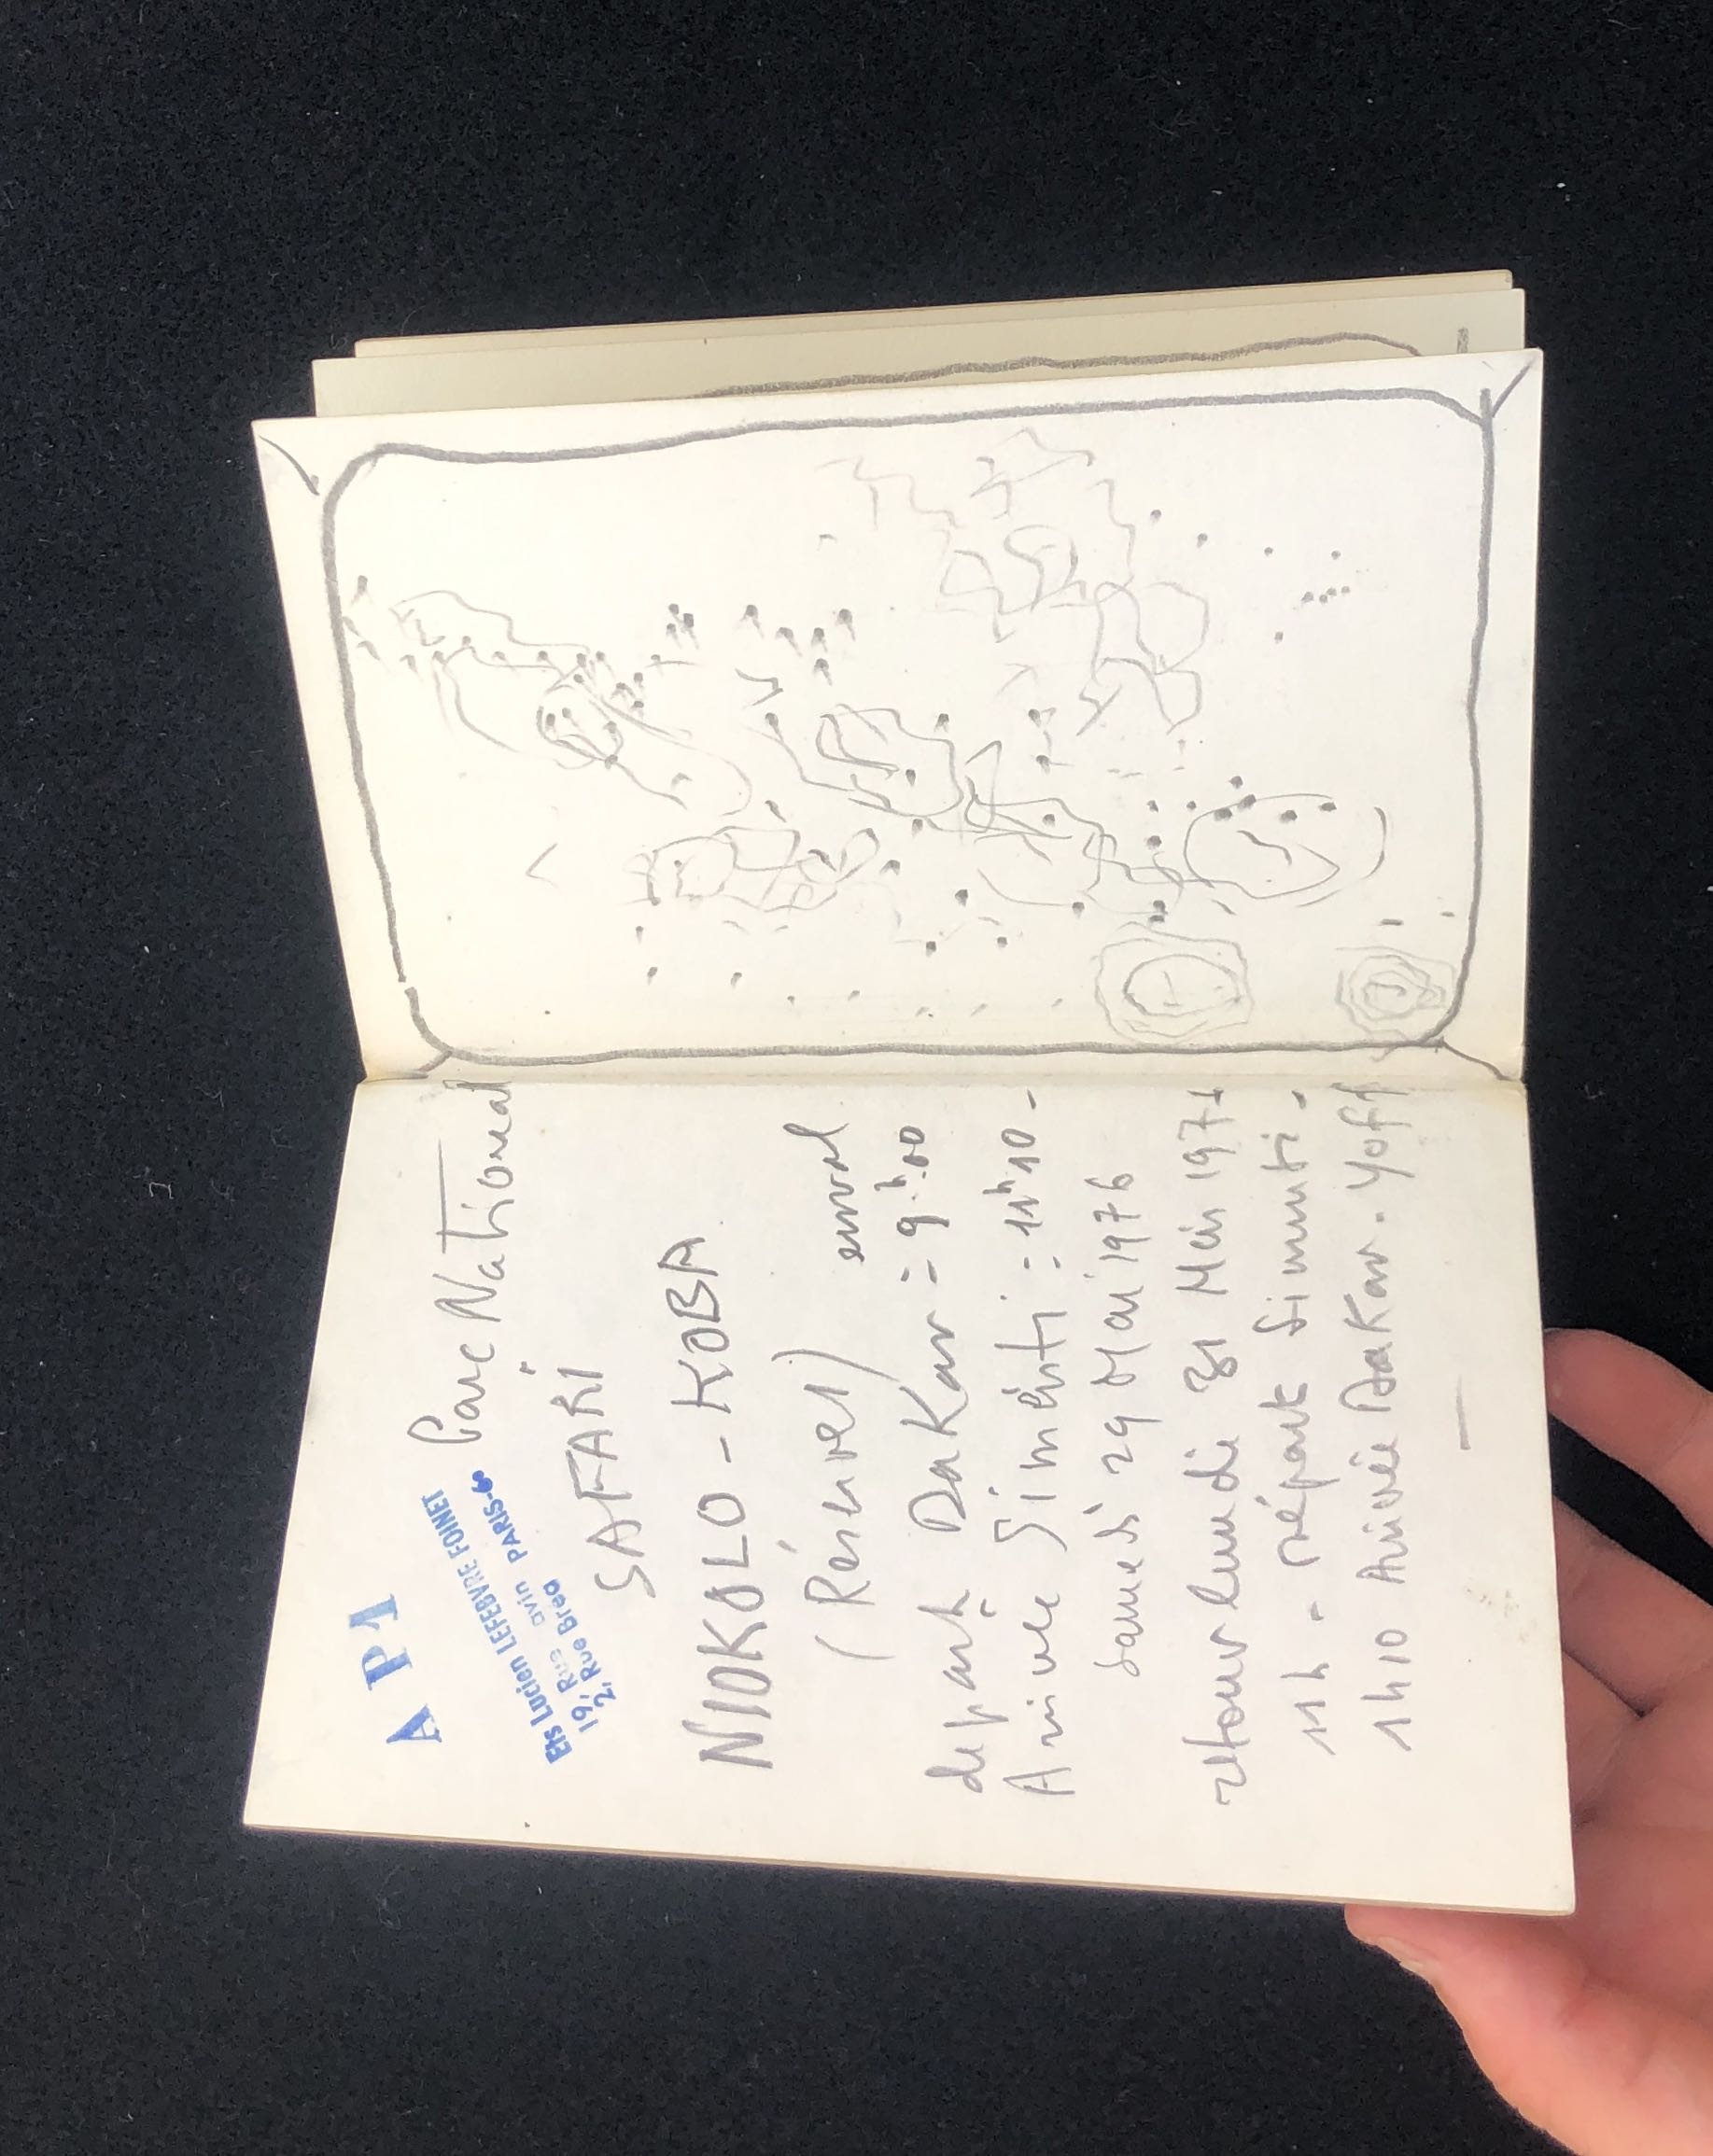 A P1
Ets Lucien LEFEBVRE FOINET
19, Rue avin PARIS-6e
2, Rue Bréa
Parc National
SAFARI
NIOKOLO-KOBA
(Réserver)
envol
départ Dakar = 9h.00
Arrivée Siménti = 11h10 -
samedi 29 Mai 1976
retour lundi 31 Mai 197
11h - répart Simmti.
1h10 Arrivée Dakar. Yoff